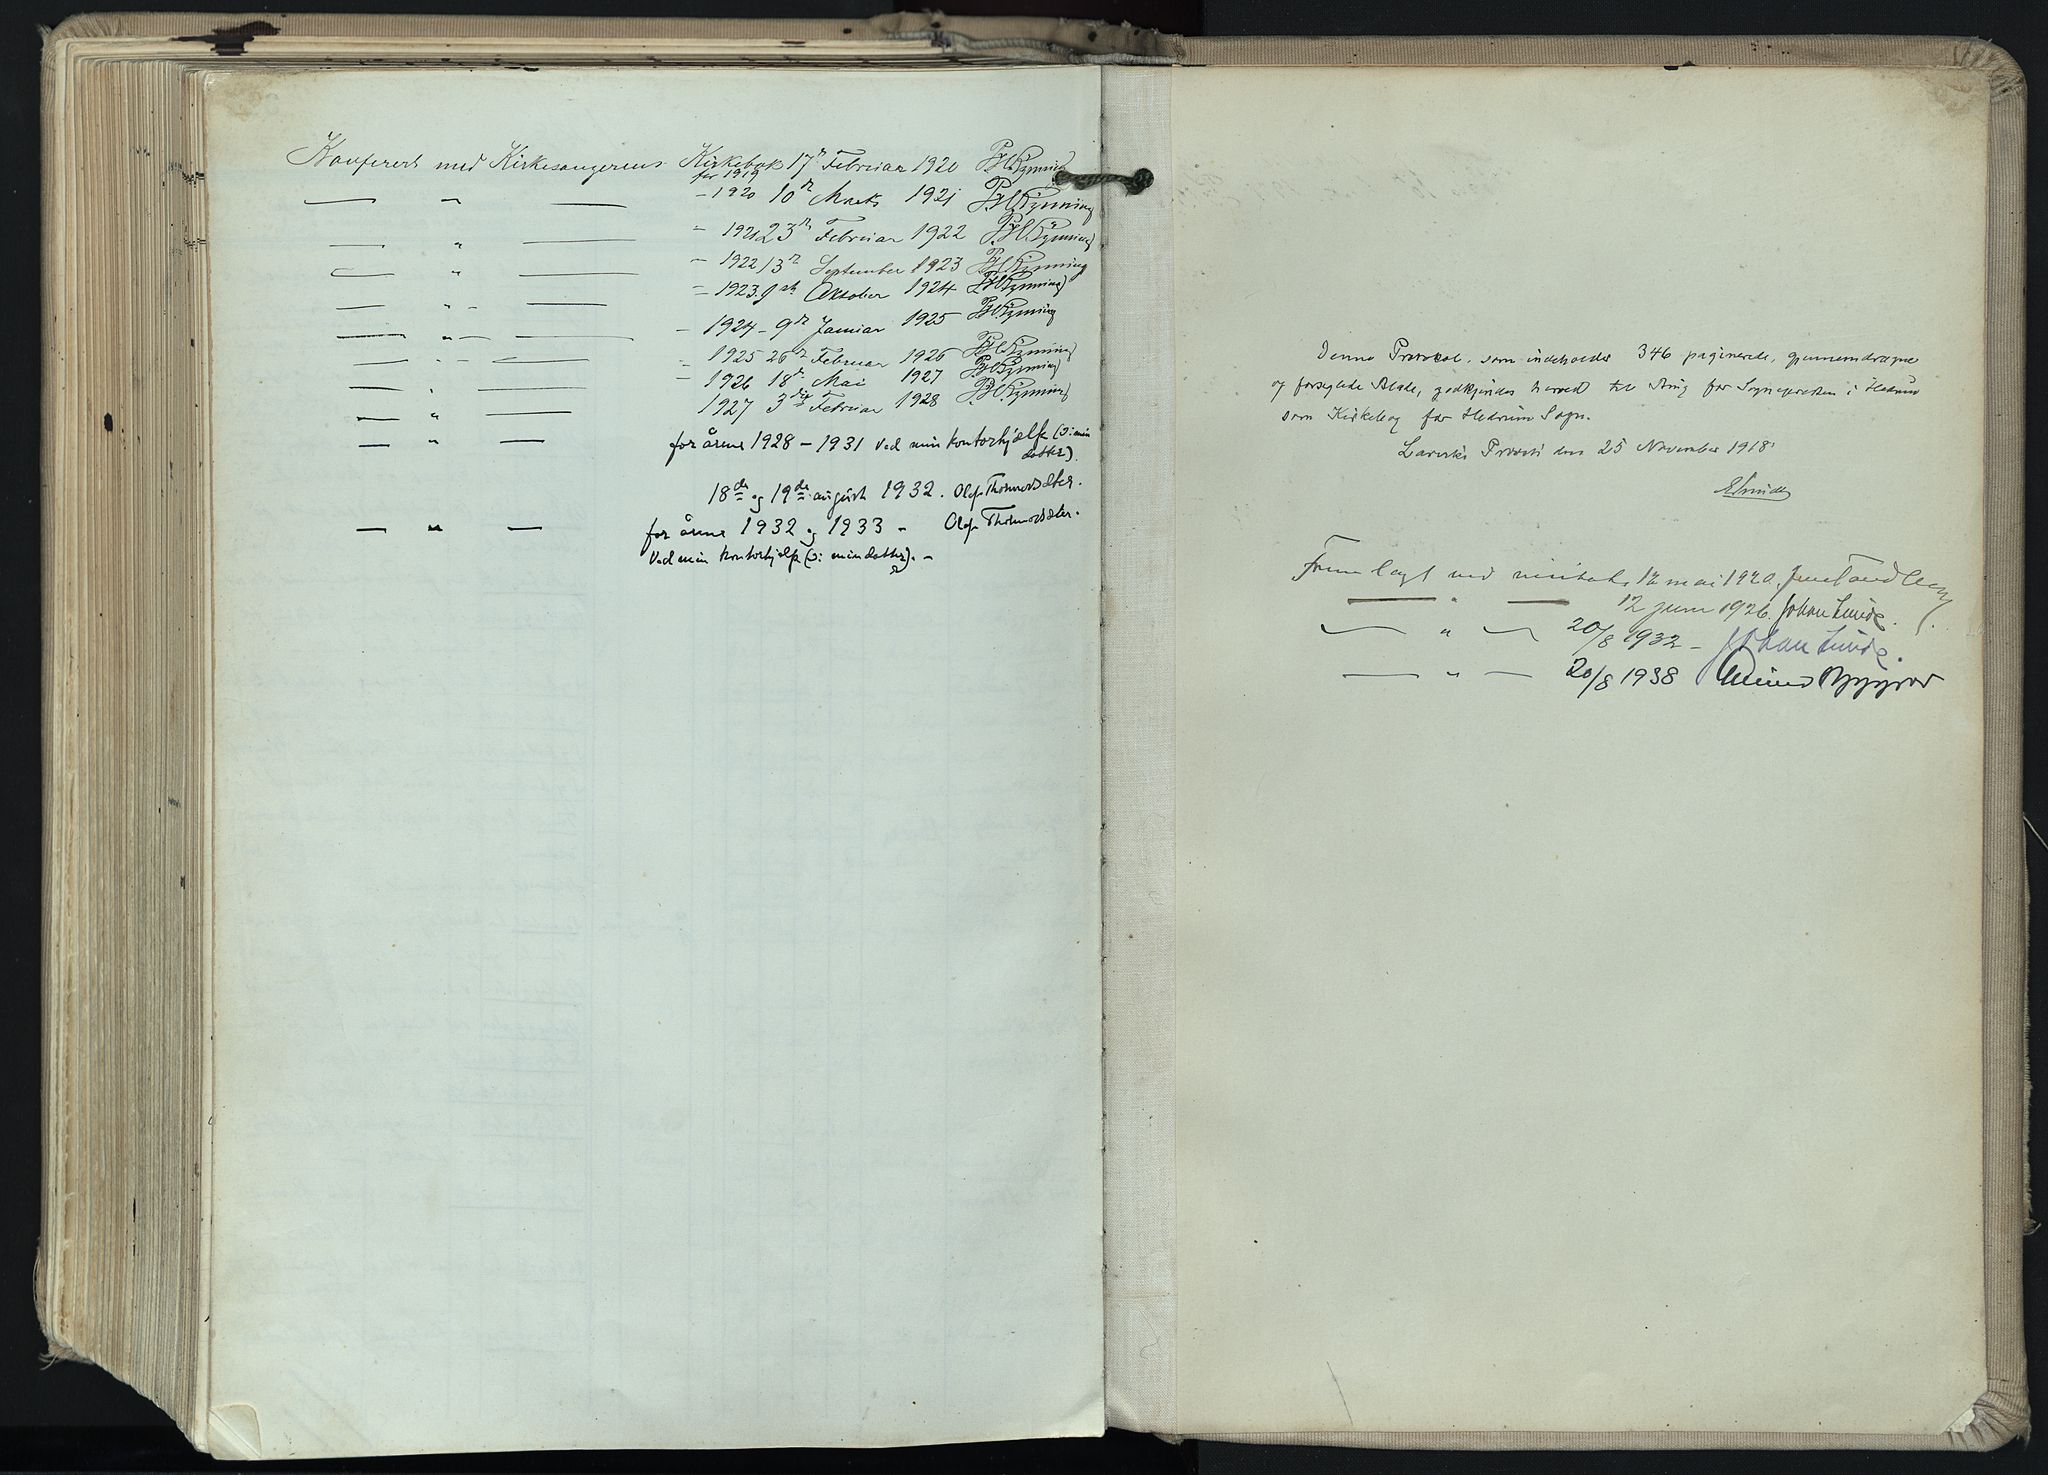 Konferert med Kirkesangerens Kirkebok for 1919 17de Februar 1920 P. H. Rynning
— " — - 1920 10de Marts 1921 P. H. Rynning
— " — - 1921 23de Februar 1922 P. H. Rynning
— " — - 1922 13de September 1923 P. H. Rynning
— " — - 1923. 9de Oktober 1924 P. H. Rynning
— " — - 1924 - 9de Januar 1925 P. H. Rynning
— " — - 1925 26de Februar 1926 P. H. Rynning
— " — - 1926 18de Mai 1927 P. H. Rynning
— " — 1927 3dje Februar 1928 P. H. Rynning
— " — for årene 1928 - 1931 ved min kontorhjælp (ɔ: min datter).
18de og 19de august 1932. Olaf Tholmodsæter.
— " — for årene 1932 og 1933 - Olaf Tholmodsæter.
Ved min kontorhjælp (ɔ: min datter). -
Denne Protokol, som indeholder 346 paginerede, gjennemdragne
og forseglede Blade, godkjendes herved til Brug for Sognepresten i Hedrum
som Kirkebog for Hedrum Sogn.
Larviks Provsti den 25 November 1918.
Fremlagt ved visitats 12 mai 1920. Jens Tandberg
— " — 12 juni 1926. Johan Lunde.
— " — 20/8 1932 - Johan Lunde.
— " — 20/8 1938 Eivind Berggrav